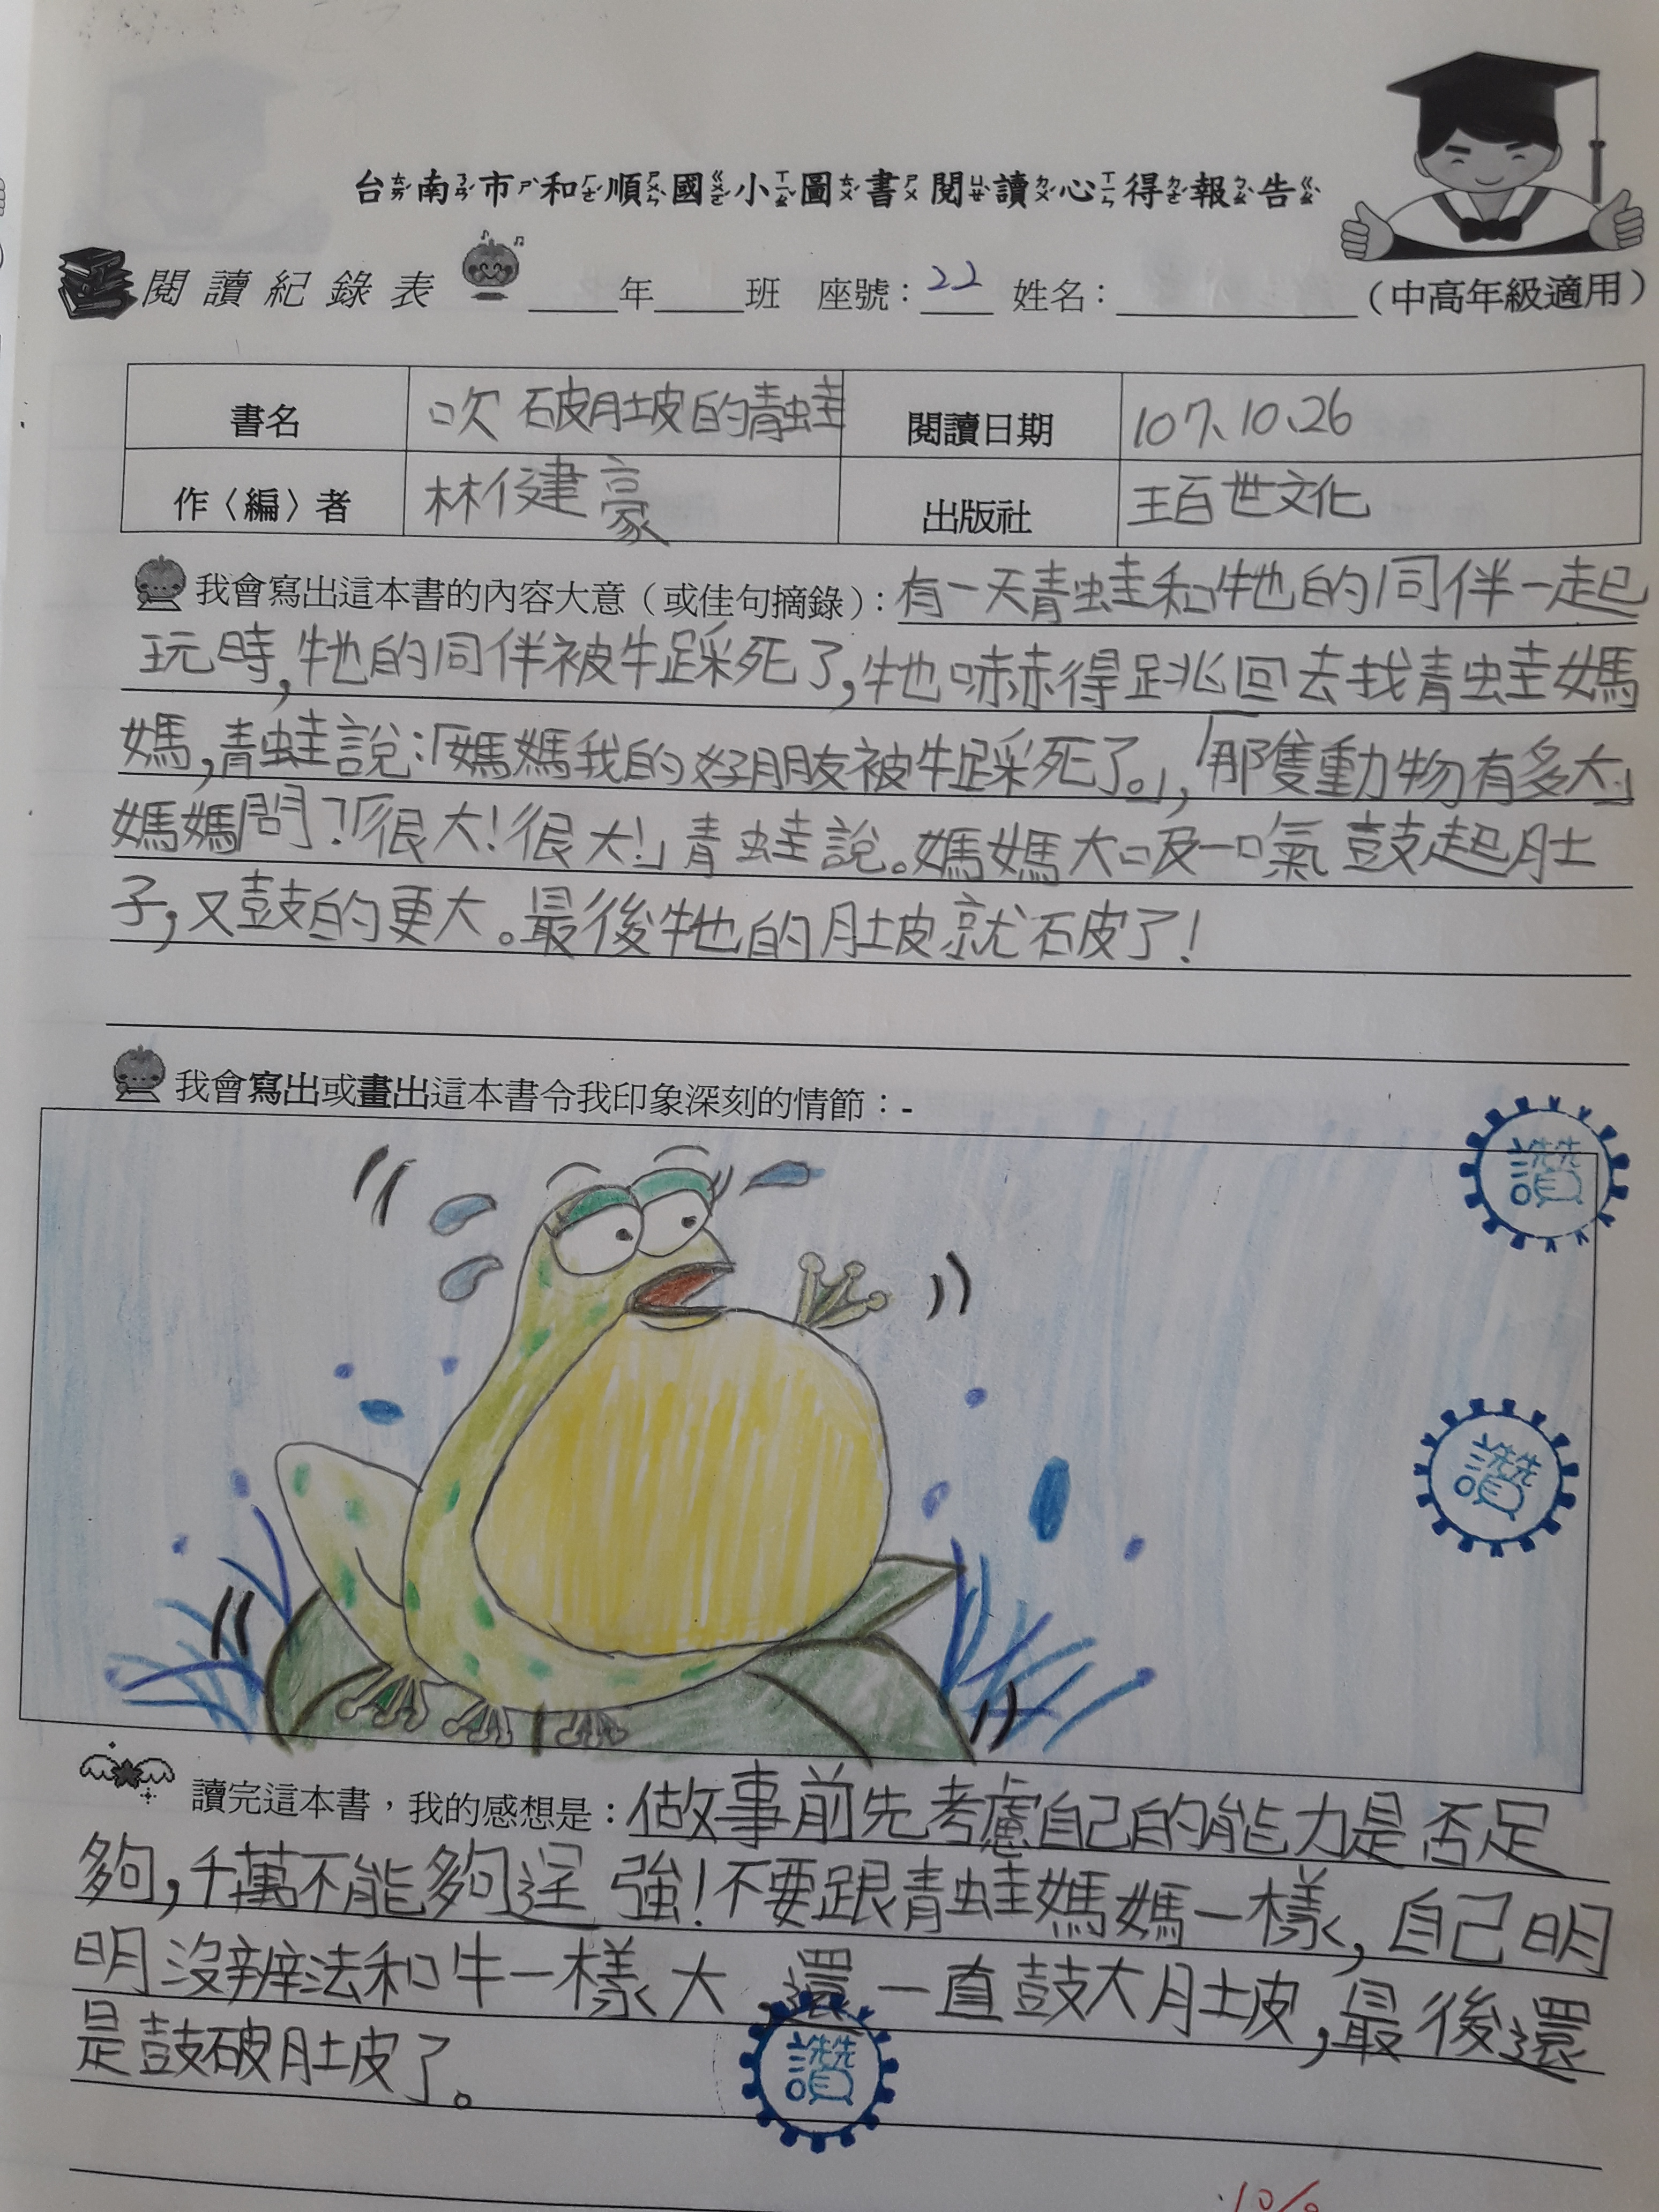 台南市和順國小圖書閱讀心得報告
閱讀紀錄表 ____年____班 座號：22 姓名：________（中高年級適用）
書名 吹破肚皮的青蛙 閱讀日期 107、10、26
作〈編〉者 林健豪 出版社 王百世文化
我會寫出這本書的內容大意（或佳句摘錄）：有一天青蛙和牠的同伴一起
玩時，牠的同伴被牛踩死了，牠嚇得跳回去找青蛙媽
媽，青蛙說：「媽媽我的好朋友被牛踩死了。」，「那隻動物有多大」
媽媽問？「很大！很大！」青蛙說。媽媽大吸一口氣鼓起肚
子，又鼓的更大。最後牠的肚皮就破了！
我會寫出或畫出這本書令我印象深刻的情節：-
讚
讚
讀完這本書，我的感想是：做事前先考慮自己的能力是否足
夠，千萬不能夠逞強！不要跟青蛙媽媽一樣，自己明
明沒辦法和牛一樣大，還一直鼓大肚皮，最後還
是鼓破肚皮了。
讚